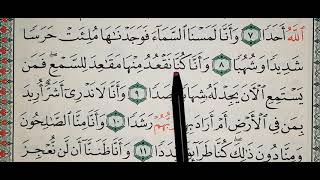 ٱللَّهُ أَحَدًا ٧ وَأَنَّا لَمَسْنَا ٱلسَّمَآءَ فَوَجَدْنَٰهَا مُلِئَتْ حَرَسًا
شَدِيدًا وَشُهُبًا ٨ وَأَنَّا كُنَّا نَقْعُدُ مِنْهَا مَقَٰعِدَ لِلسَّمْعِ فَمَن
يَسْتَمِعِ ٱلْآنَ يَجِدْ لَهُۥ ٩ وَأَنَّا لَا نَدْرِىٓ أَشَرٌّ أُرِيدَ
بِمَن فِى ٱلْأَرْضِ أَمْ أَرَادَ رَبُّهُمْ رَشَدًا ١٠ وَأَنَّا مِنَّا ٱلصَّٰلِحُونَ
وَمِنَّا دُونَ ذَٰلِكَ كُنَّا طَرَآئِقَ ١١ وَأَنَّا ظَنَنَّآ أَن لَّن نُّعْجِزَ